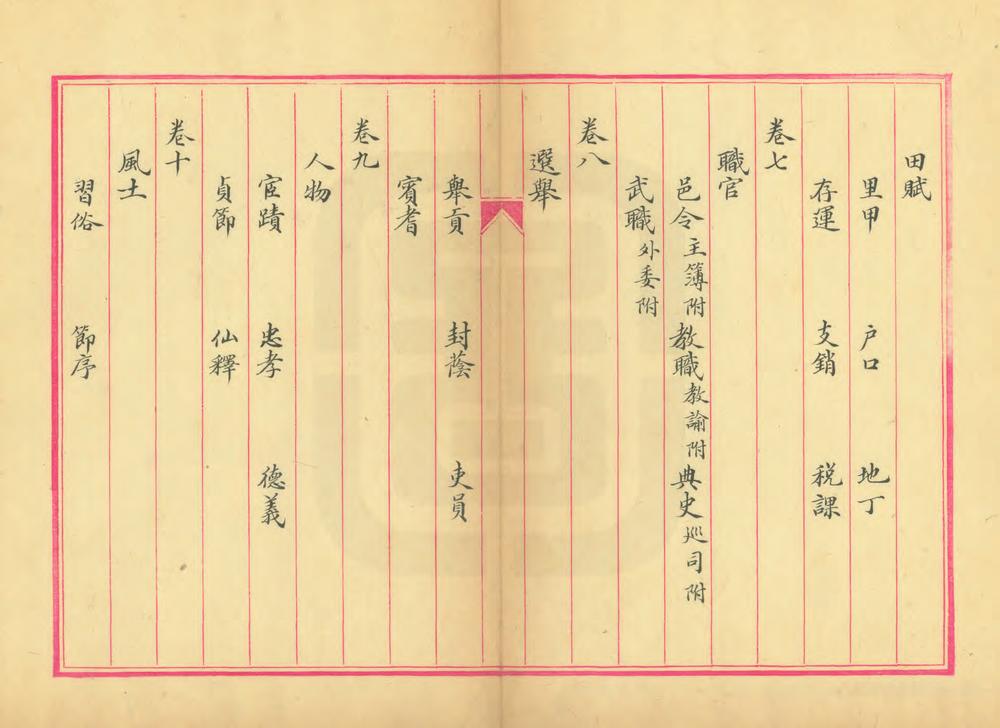 田賦
里甲 戶口 地丁
存運 支銷 税課
卷七
職官
邑令主簿附教職教諭附典史巡司附
武職外委附
卷八
選舉
舉貢 封蔭 吏員
賓耆
卷九
人物
宦蹟 忠孝 德義
貞節 仙釋
卷十
風土
習俗 節序